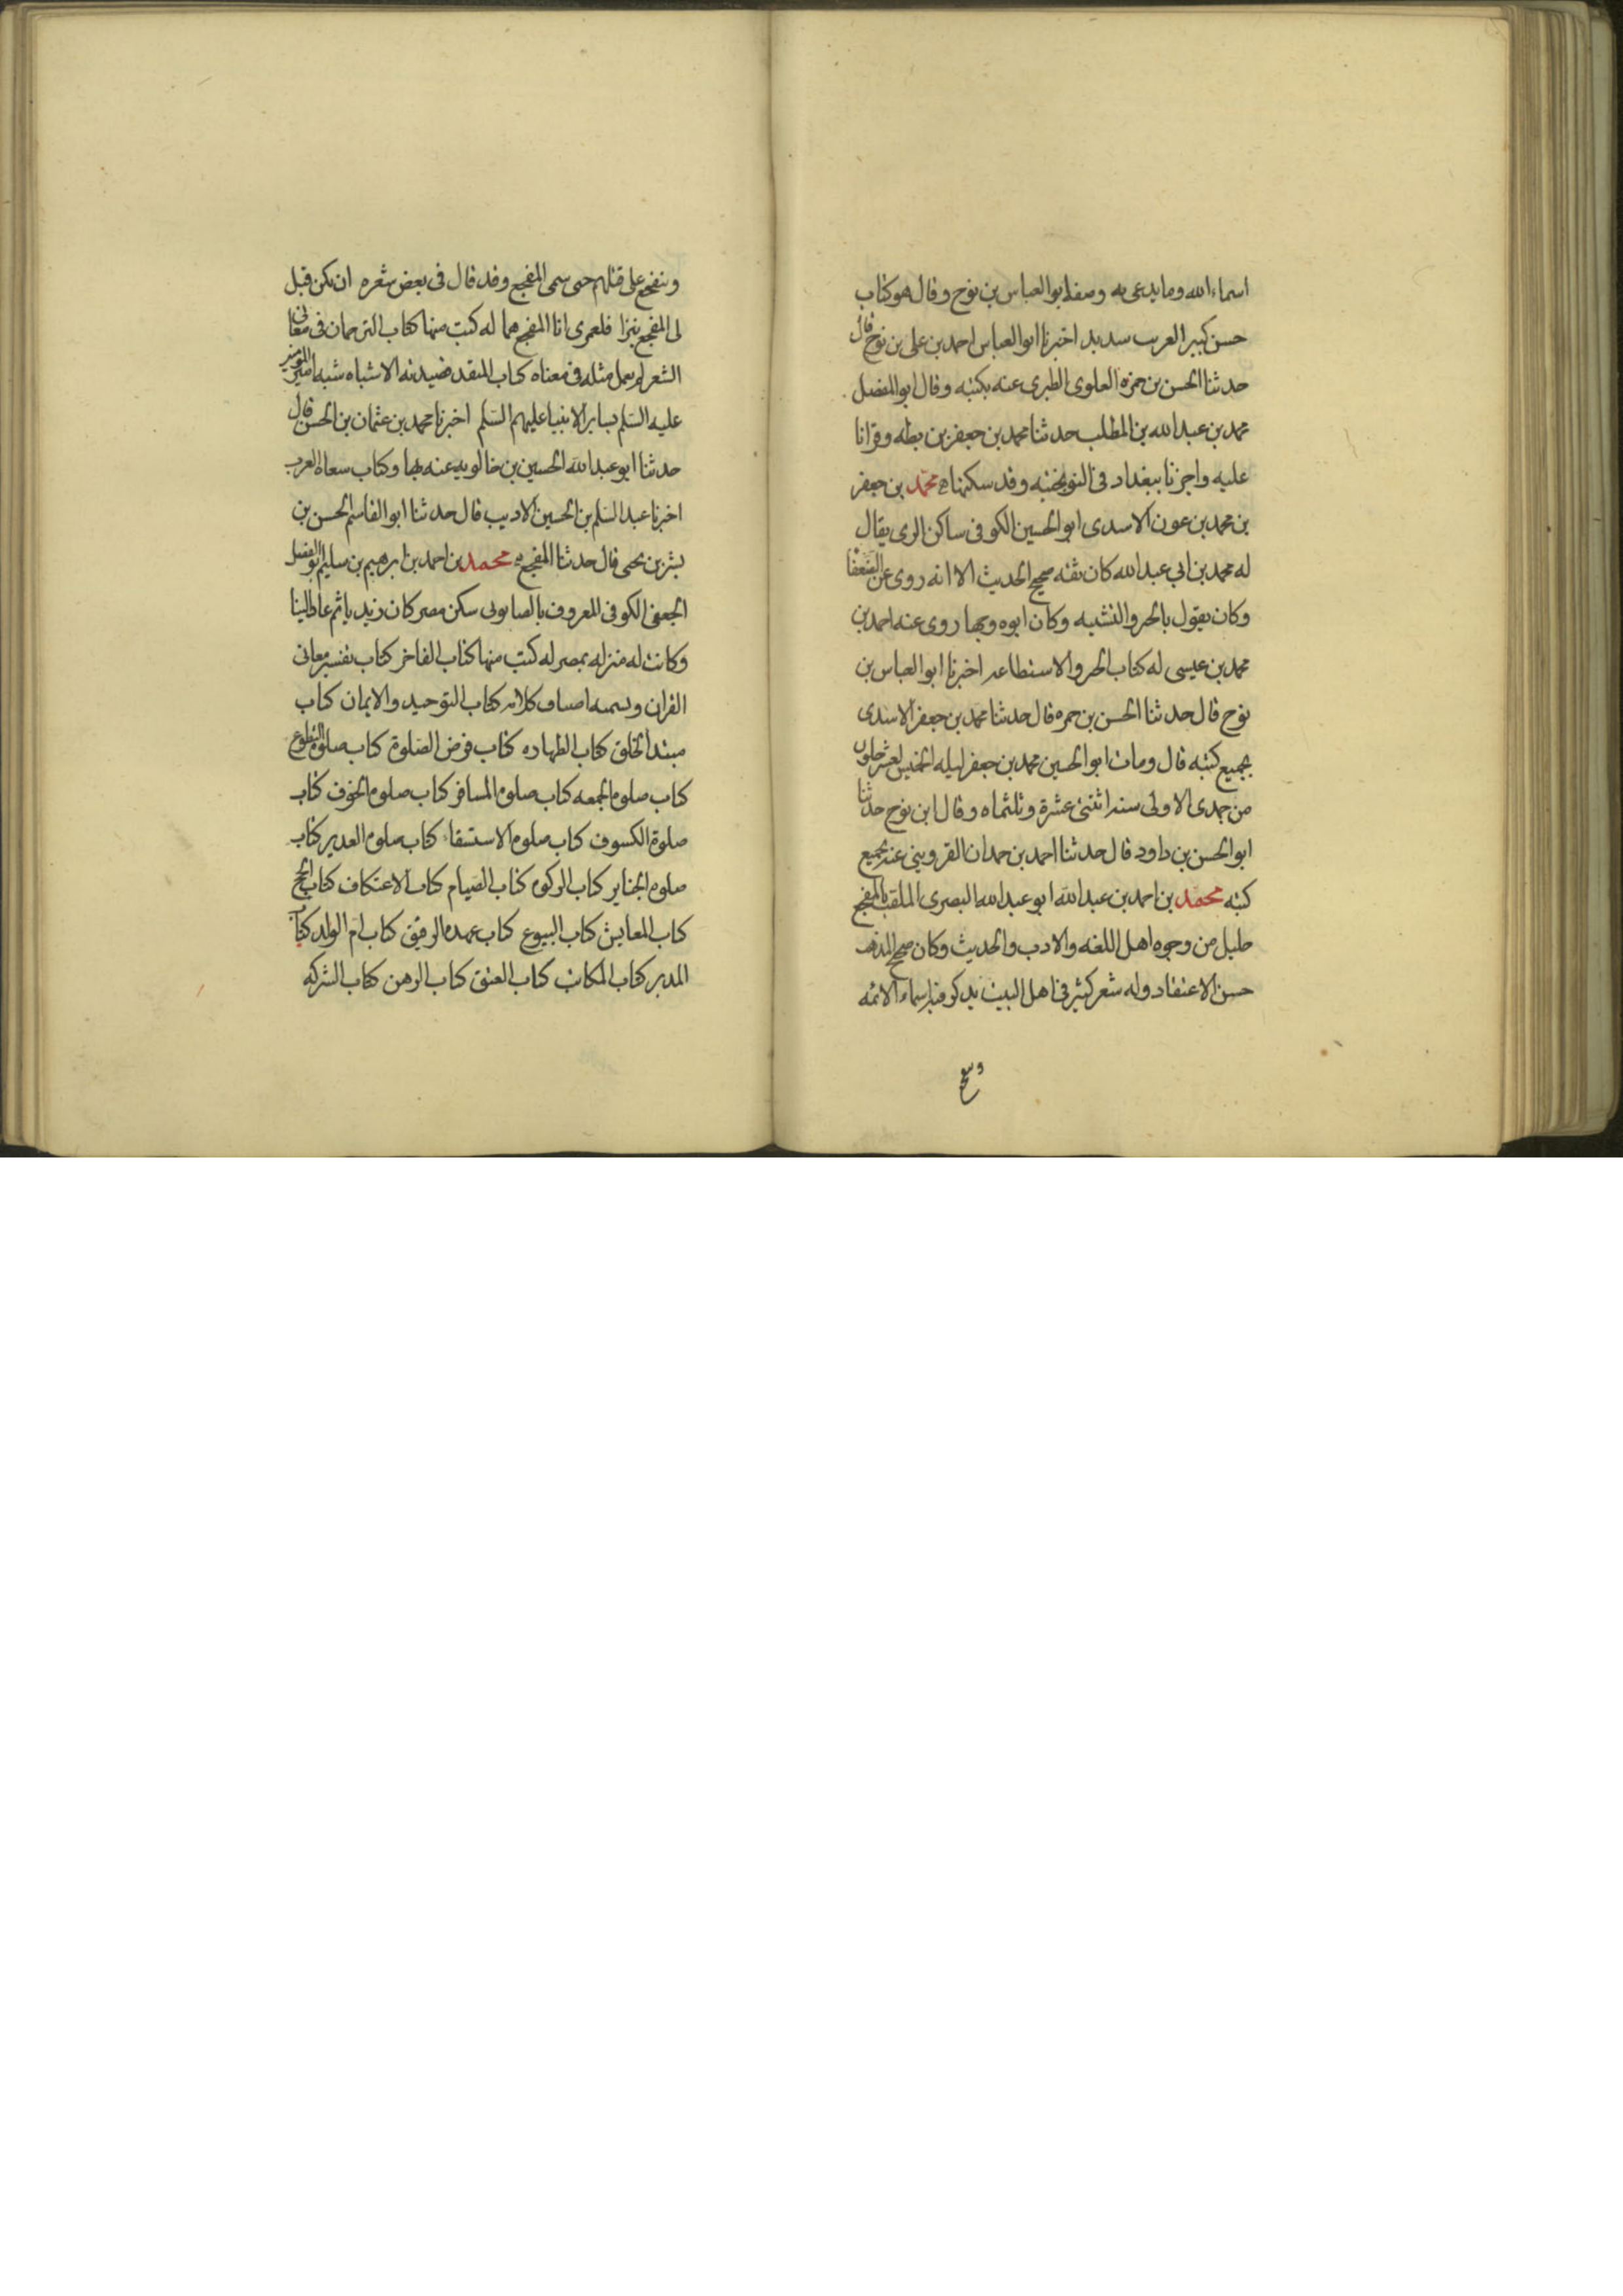 اسماء الله وما يدعى به وصفه ابو العباس بن نوح وقال هو كتاب
حسن كبير الغريب سديد اخبرنا ابو العباس احمد بن على بن نوح قال
حدثنا الحسن بن حمزه العلوى الطبرى عنه بكتبه وقال ابو المفضل
محمد بن عبد الله بن المطلب حدثنا محمد بن جعفر بن بطه وقرانا
عليه واجزنا ببغداد فى النوبختيه وقد سكنها محمد بن جعفر
بن محمد بن عون الاسدى ابو الحسين الكوفى ساكن الرى يقال
له محمد بن ابى عبد الله كان ثقه صحيح الحديث الا انه روى عن الضعفا
وكان يقول بالجبر والتشبيه وكان ابوه وجها روى عنه احمد بن
محمد بن عيسى له كتاب الجبر والاستطاعه اخبرنا ابو العباس بن
نوح قال حدثنا الحسن بن حمزه قال حدثنا محمد بن جعفر الاسدى
بجميع كتبه قال ومات ابو الحسين محمد بن جعفر ليله الخميس لعشر خلون
من جمدى الاولى سنه اثنتى عشرة وثلثماه وقال ابن نوح حدثنا
ابو الحسن بن داود قال حدثنا احمد بن حمدان القزوينى عنه بجميع
كتبه محمد بن احمد بن عبد الله ابو عبد الله البصرى الملقب بالمفجع
جليل من وجوه اهل اللغه والادب والحديث وكان صحيح المذهب
حسن الاعتقاد وله شعر كثير فى اهل البيت يذكر فيه اسماء الائمه
ويتفجع
ويتفجع على قتلهم حتى سمى المفجع وقد قال فى بعض شعره ان يكن قيل
لى المفجع نبزا فلعمرى انا المفجع هما له كتب منها كتاب الترجمان فى معانى
الشعر لم يعمل مثله فى معناه كتاب المنقد قصيدته الاشباه شبه امير المومنين
عليه السلم بساير الانبيا عليهم السلم اخبرنا محمد بن عثمان بن الحسن قال
حدثنا ابو عبد الله الحسين بن خالويه عنه بها وكتاب سعاه العرب
اخبرنا عبد السلم بن الحسين الاديب قال حدثنا ابو القاسم الحسن بن
بشر بن يحيى قال حدثنا المفجع به محمد بن احمد بن ابرهيم بن سليم ابو الفضل
الجعفى الكوفى المعروف بالصابونى سكن مصر كان زيديا ثم عاد الينا
وكانت له منزله بمصر له كتب منها كتاب الفاخر كتاب تفسير معانى
القران وتسميه اصناف كلامه كتاب التوحيد والايمان كتاب
مبتدا الخلق كتاب الطهاره كتاب فرض الصلوة كتاب صلوة التطوع
كتاب صلوه الجمعه كتاب صلوه المسافر كتاب صلوه الخوف كتاب
صلوة الكسوف كتاب صلوه الاستسقاء كتاب صلوه الغدير كتاب
صلوه الجنايز كتاب الزكوه كتاب الصيام كتاب الاعتكاف كتاب الحج
كتاب المعايش كتاب البيوع كتاب عهده الرقيق كتاب ام الولد كتاب
المدبر كتاب المكاتب كتاب العتق كتاب الرهن كتاب الشركه